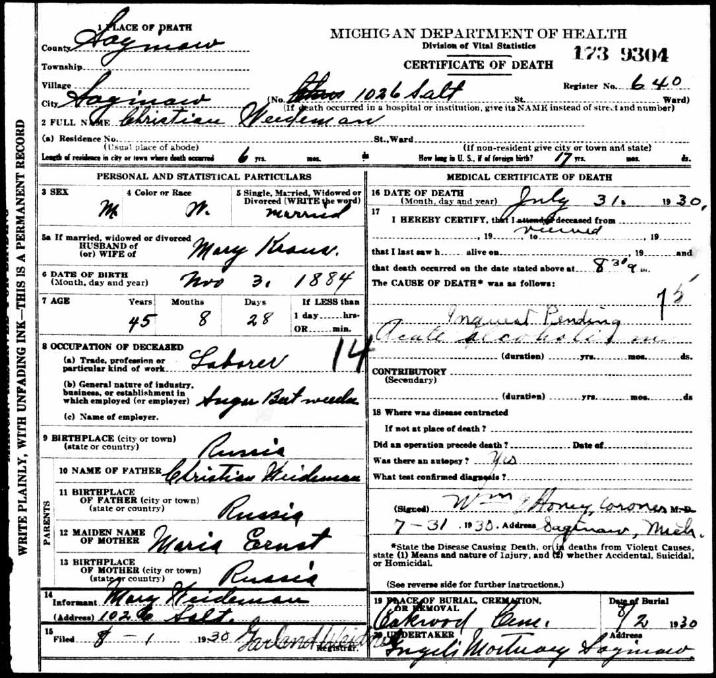 MICHIGAN DEPARTMENT OF HEALTH
Division of Vital Statistics
CERTIFICATE OF DEATH
173 9304
1 PLACE OF DEATH
County Saginaw
Township
Village
Register No. 640
City Saginaw (No. 1026 Salt St. Ward)
(If death occurred in a hospital or institution, give its NAME instead of street and number)
2 FULL NAME Christian Weideman
(a) Residence No. St., Ward
(Usual place of abode) (If non-resident give city or town and state)
Length of residence in city or town where death occurred 6 yrs. mos. ds How long in U. S., if of foreign birth? 17 yrs. mos. ds.
PERSONAL AND STATISTICAL PARTICULARS
3 SEX 4 Color or Race 5 Single, Married, Widowed or Divorced (WRITE the word)
M W. married
5a If married, widowed or divorced
HUSBAND of
(or) WIFE of Mary Kraus.
6 DATE OF BIRTH
(Month, day and year) Nov 3, 1884
7 AGE Years Months Days If LESS than
45 8 28 1 day hrs-
OR min.
8 OCCUPATION OF DECEASED
(a) Trade, profession or
particular kind of work Laborer 14
(b) General nature of industry,
business, or establishment in
which employed (or employer) Sugar Beet weeder
(c) Name of employer.
9 BIRTHPLACE (city or town)
(state or country) Russia
PARENTS
10 NAME OF FATHER Christian Weideman
11 BIRTHPLACE
OF FATHER (city or town)
(state or country) Russia
12 MAIDEN NAME
OF MOTHER Maria Ernst
13 BIRTHPLACE
OF MOTHER (city or town)
(state or country) Russia
14
Informant Mary Weideman
(Address) 1026 Salt.
15
Filed 8-1 1930 Garland
Registrar.
MEDICAL CERTIFICATE OF DEATH
16 DATE OF DEATH
(Month, day and year) July 31. 1930,
17
I HEREBY CERTIFY, that I attended deceased from
viewed
, 19 to , 19
that I last saw h alive on , 19 and
that death occurred on the date stated above at 8 30 a m.
The CAUSE OF DEATH* was as follows:
75
Inquest Pending
Acute alcoholism
(duration) yrs. mos. ds.
CONTRIBUTORY
(Secondary)
(duration) yrs. mos. ds
18 Where was disease contracted
If not at place of death?
Did an operation precede death? Date of
Was there an autopsy? Yes
What test confirmed diagnosis?
(Signed) Wm J Honey, Coroner M.D.
7-31 1930. Address Saginaw, Mich.
*State the Disease Causing Death, or in deaths from Violent Causes,
state (1) Means and nature of Injury, and (2) whether Accidental, Suicidal,
or Homicidal.
(See reverse side for further instructions.)
19 PLACE OF BURIAL, CREMATION, OR REMOVAL Date of Burial
Oakwood Cem. 8/2 1930
20 UNDERTAKER Address
Mortuary Saginaw
WRITE PLAINLY, WITH UNFADING INK—THIS IS A PERMANENT RECORD